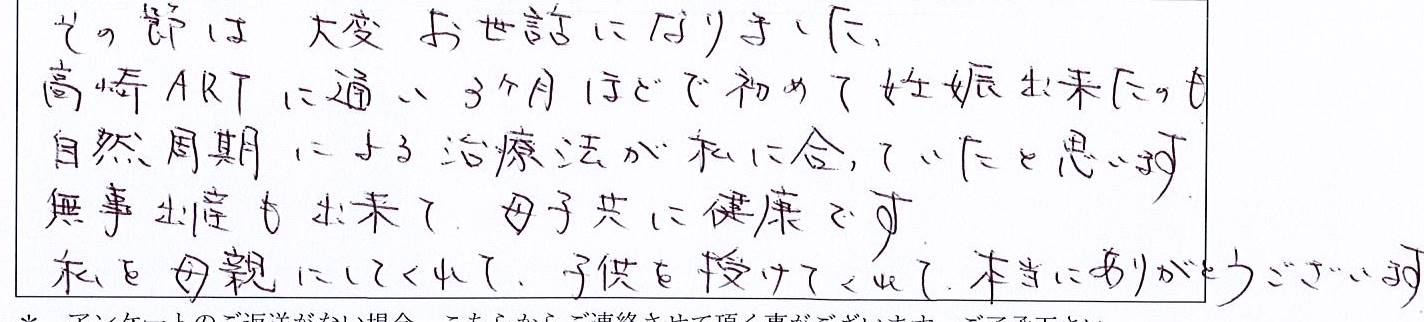 その節は 大変 お世話になりました、
高崎ARTに通い3ヶ月ほどで初めて妊娠出来たのも
自然周期による治療法が私に合っていたと思います
無事出産も出来て、母子共に健康です
私を母親にしてくれて、子供を授けてくれて、本当にありがとうございます
＊ アンケートのご返送がない場合、こちらからご連絡させて頂く事がございます。ご了承下さい